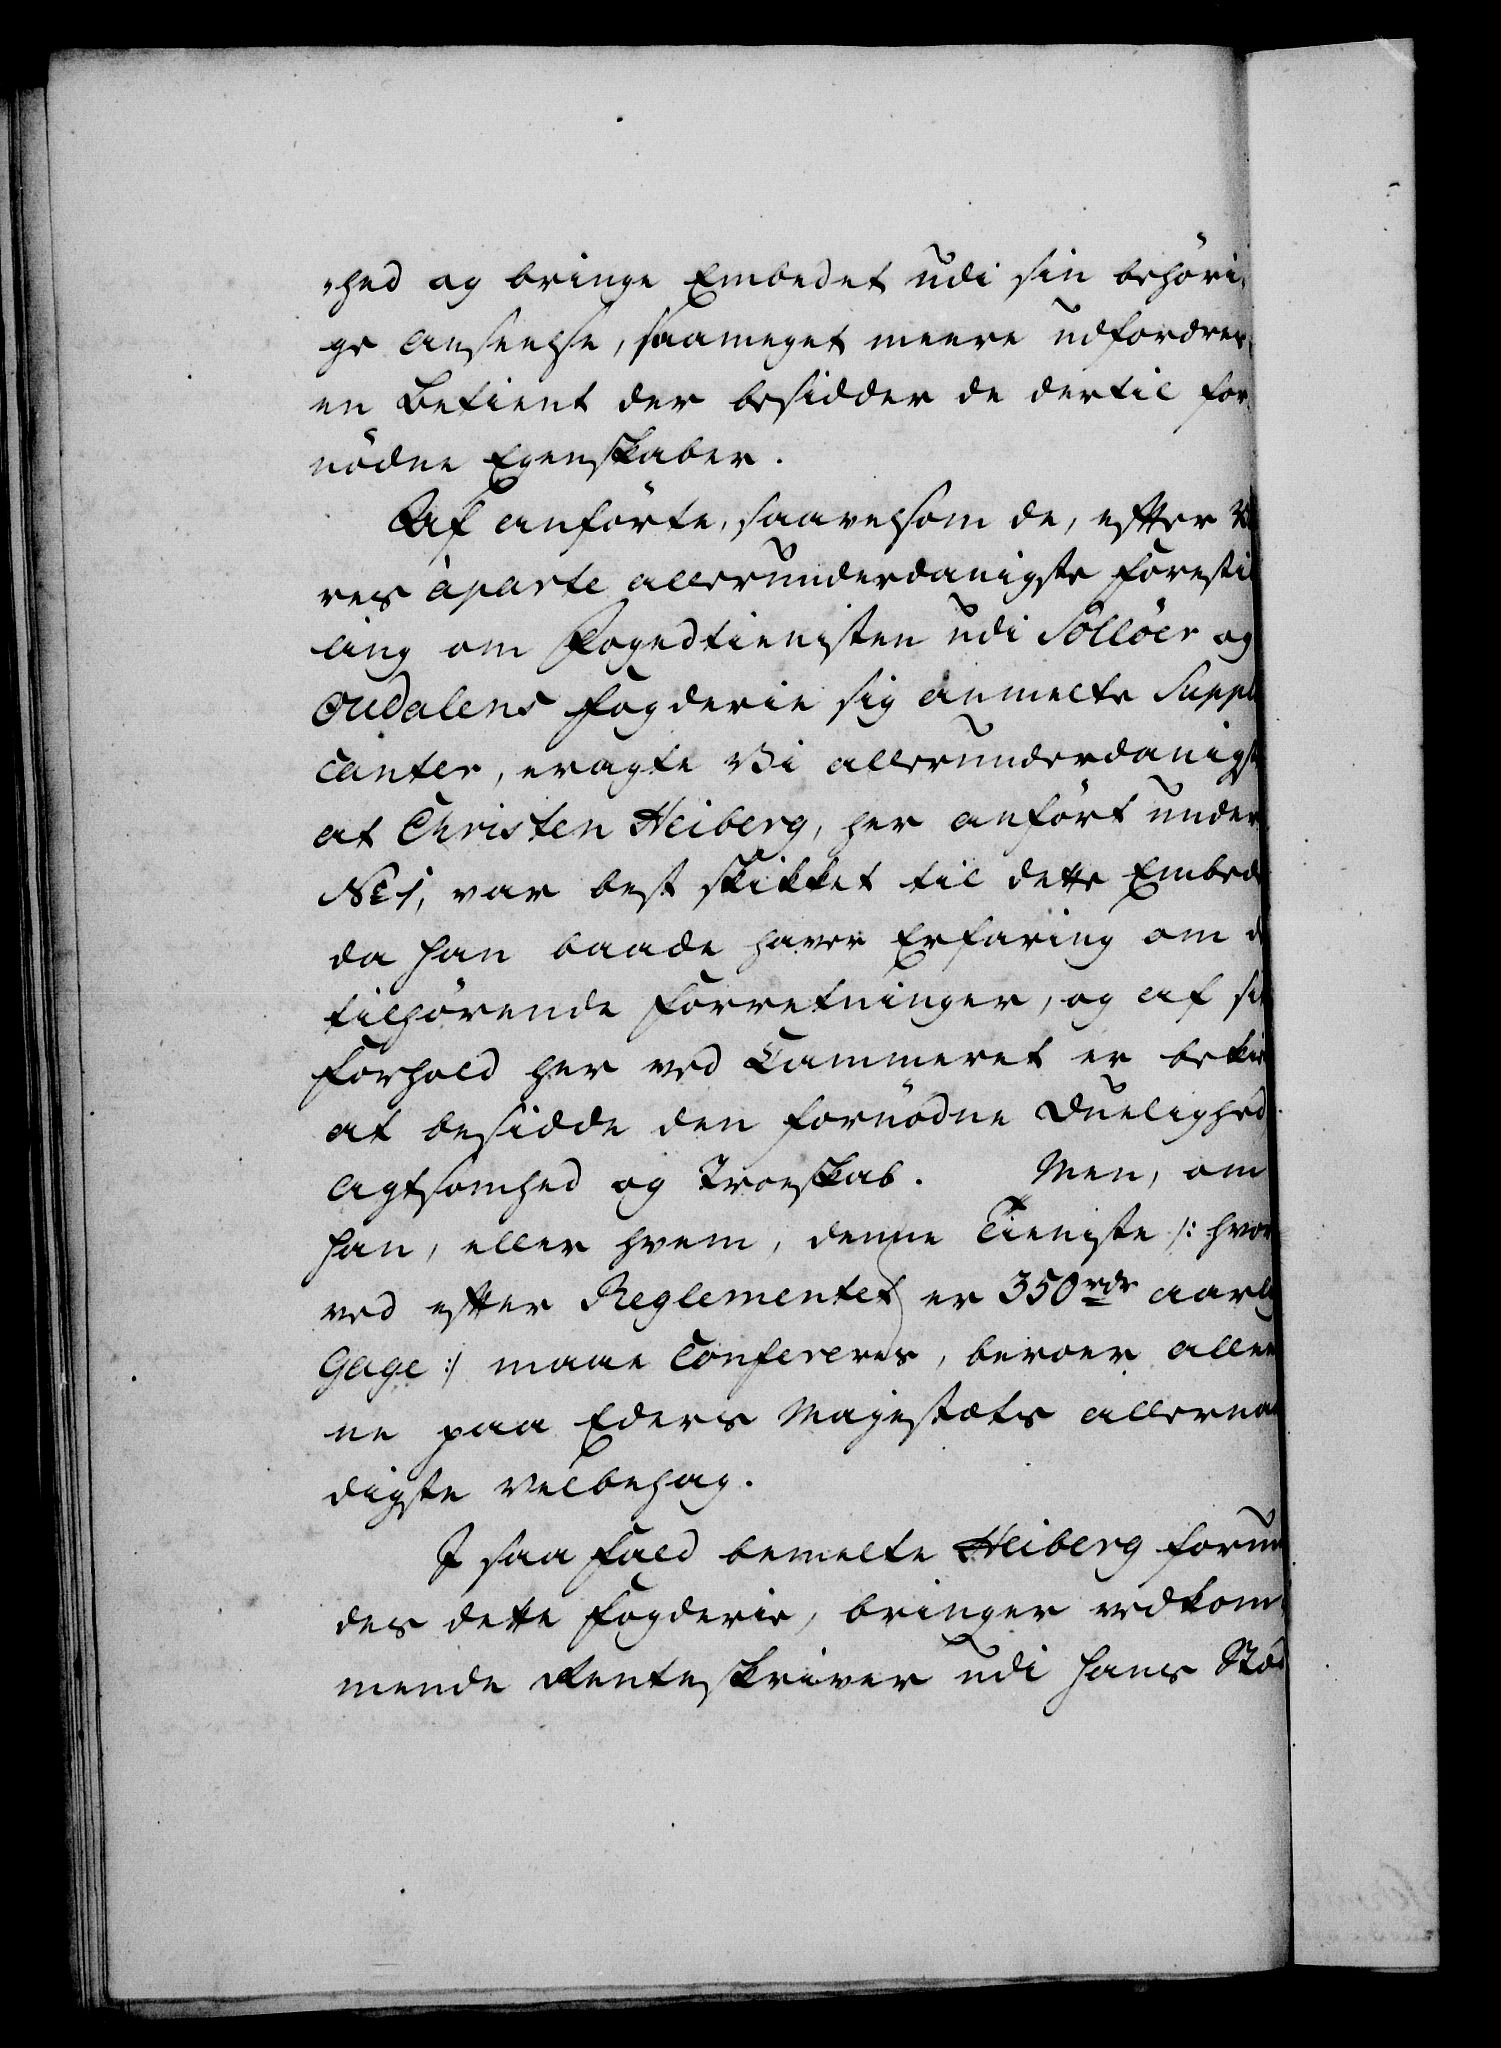 -hed og bringe Embedet udi sin behöri-
ge Anseelse, saameget meere udfordres
en Betient der besidder de dertil for-
nödne Egenskaber.
Af anförte, saavelsom de, efter Vo
res aparte allerunderdanigste Forestil
ling om Fogedtienisten udi Sollöer og
Oudalens Fogderie sig anmelte Suppli
canter, eragte Vi allerunderdanigst
at Christen Heiberg, her anfört under
No 1, var best skikket til dette Embede
da han baade haver Erfaring om de
tilhörende Forretninger, og af sit
Forhold her ved Cammeret er bekien
at besidde den fornödne Duelighed
Agtsomhed og Troeskab. Men, om
han, eller hvem, denne Tieniste /: hvor
ved efter Reglementet er 350 rdr aarlig
Gage :/ maae Confereres, beroer allee
ne paa Eders Majestæts allernaa
digste Velbehag.
I saa Fald bemelte Heiberg forun
des dette Fogderie, bringer vedkom-
mende Renteskriver udi hans Stæd